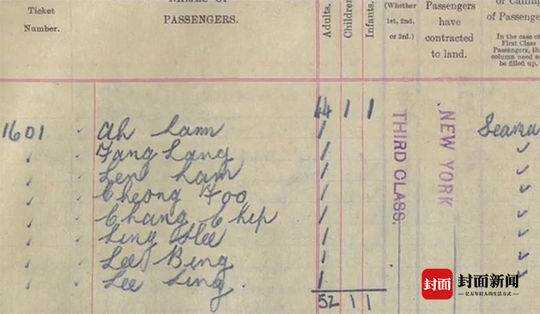 Ticket Number.
PASSENGERS.
Adults.
Children
Infants.
(Whether 1st, 2nd, or 3rd.)
Passengers have contracted to land.
of Passenge
In the case of First Class Passengers, th column need n be filled up.
44 1 1
1601 Ah Lam 1 Seama
Fang Lang 1
Len Lam 1
Cheong Foo 1
Chang Chip 1
Ling Hee 1
Lee Bing 1
Lee Ling 1
THIRD CLASS.
NEW YORK
52 1 1
封面 封面新闻
亿万年轻人的生活方式